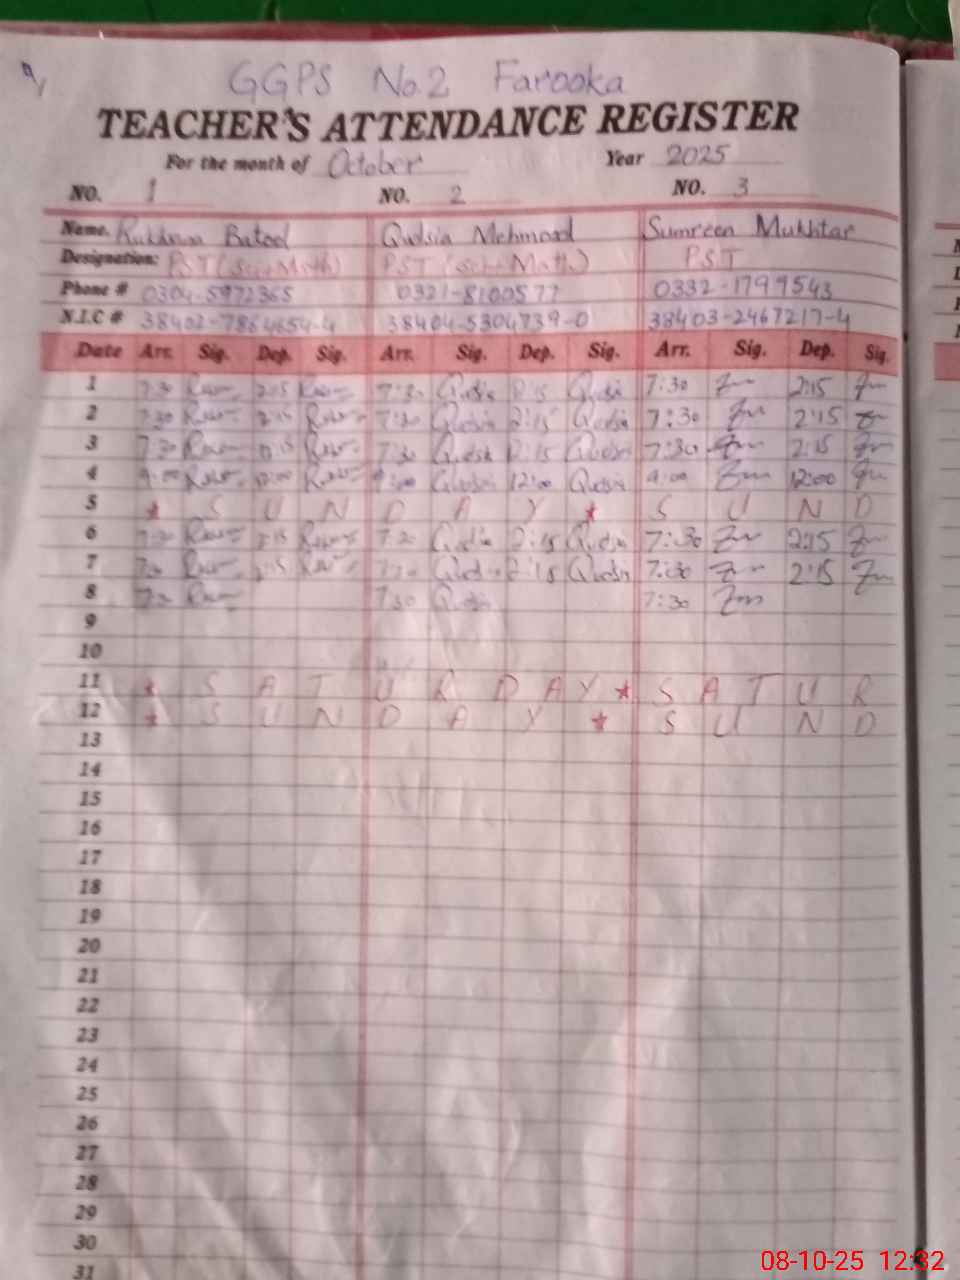 GGPS No.2 Farooka
TEACHER'S ATTENDANCE REGISTER
For the month of October Year 2025
NO. 1 NO. 2 NO. 3
Name. Batool Qudsia Mehmood Sumreen Mukhtar
Designation: PST (Sci-Math) PST (Sci-Math) PST
Phone # 0304-5972365 0321-8100577 0332-1799543
N.I.C # 38403-7864654-4 38404-5304739-0 38403-2467217-4
Date Arr. Sig. Dep. Sig. Arr. Sig. Dep. Sig. Arr. Sig. Dep. Sig.
1 7:30 2:15 7:30 Qudsia 2:15 Qudsia 7:30 2:15
2 7:30 2:15 7:30 Qudsia 2:15 Qudsia 7:30 2:15
3 7:30 2:15 7:30 Qudsia 2:15 Qudsia 7:30 2:15
4 9:00 12:00 9:00 Qudsia 12:00 Qudsia 9:00 12:00
5 * S U N D A Y * S U N D
6 7:30 2:15 7:30 Qudsia 2:15 Qudsia 7:30 2:15
7 7:30 2:15 7:30 Qudsia 2:15 Qudsia 7:30 2:15
8 7:30 7:30 Qudsia 7:30
9
10
11 * S A T U R D A Y * S A T U R
12 * S U N D A Y * S U N D
13
14
15
16
17
18
19
20
21
22
23
24
25
26
27
28
29
30
31
08-10-25 12:32